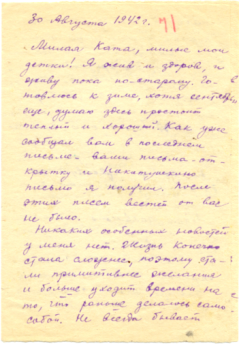 30 Августа 1942 г. 71
Милая Ката, милые мои
детки! Я жив и здоров, и
живу пока по-старому. Го-
товлюсь к зиме, хотя сентябрь
еще, думаю здесь простоит
теплый и хороший. Как уже
сообщал вам в последнем
письме - ваши письма - от-
крытку и
письмо я получил. После
этих писем вестей от вас
не было.
Никаких особенных новостей
у меня нет. Жизнь конечно
стала сложнее, поэтому
ли примитивнее желание
и больше уходит времени на
то, что раньше делалось само
собой. Не всегда бывает